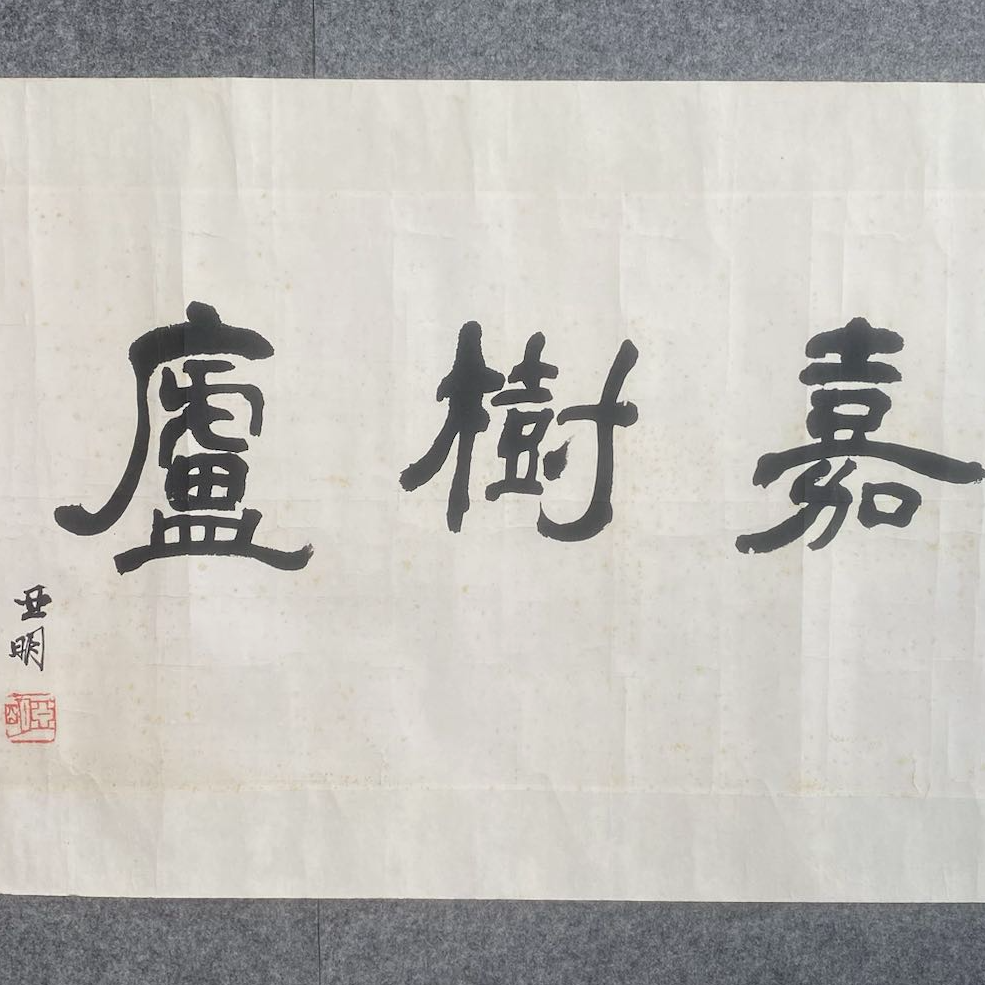 嘉樹廬
亞明